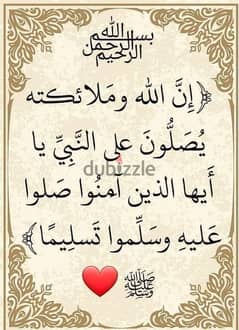 بسم الله الرحمن الرحيم
﴿إِنَّ الله ومَلائكته
يُصَلُّونَ على النَّبِيِّ يا
dubizzle
أَيها الذين آمنُوا صَلوا
عَليهِ وسَلِّموا تَسليمًا﴾
ﷺ